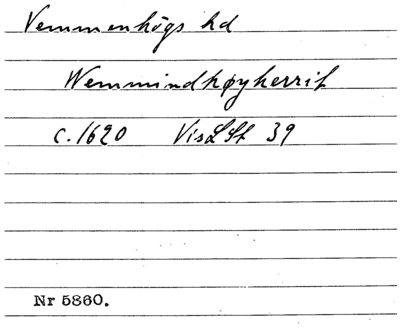 Vemmenhögs hd
Wemmindhøyherrit
c. 1620 VisLSt 39
Nr 5860.